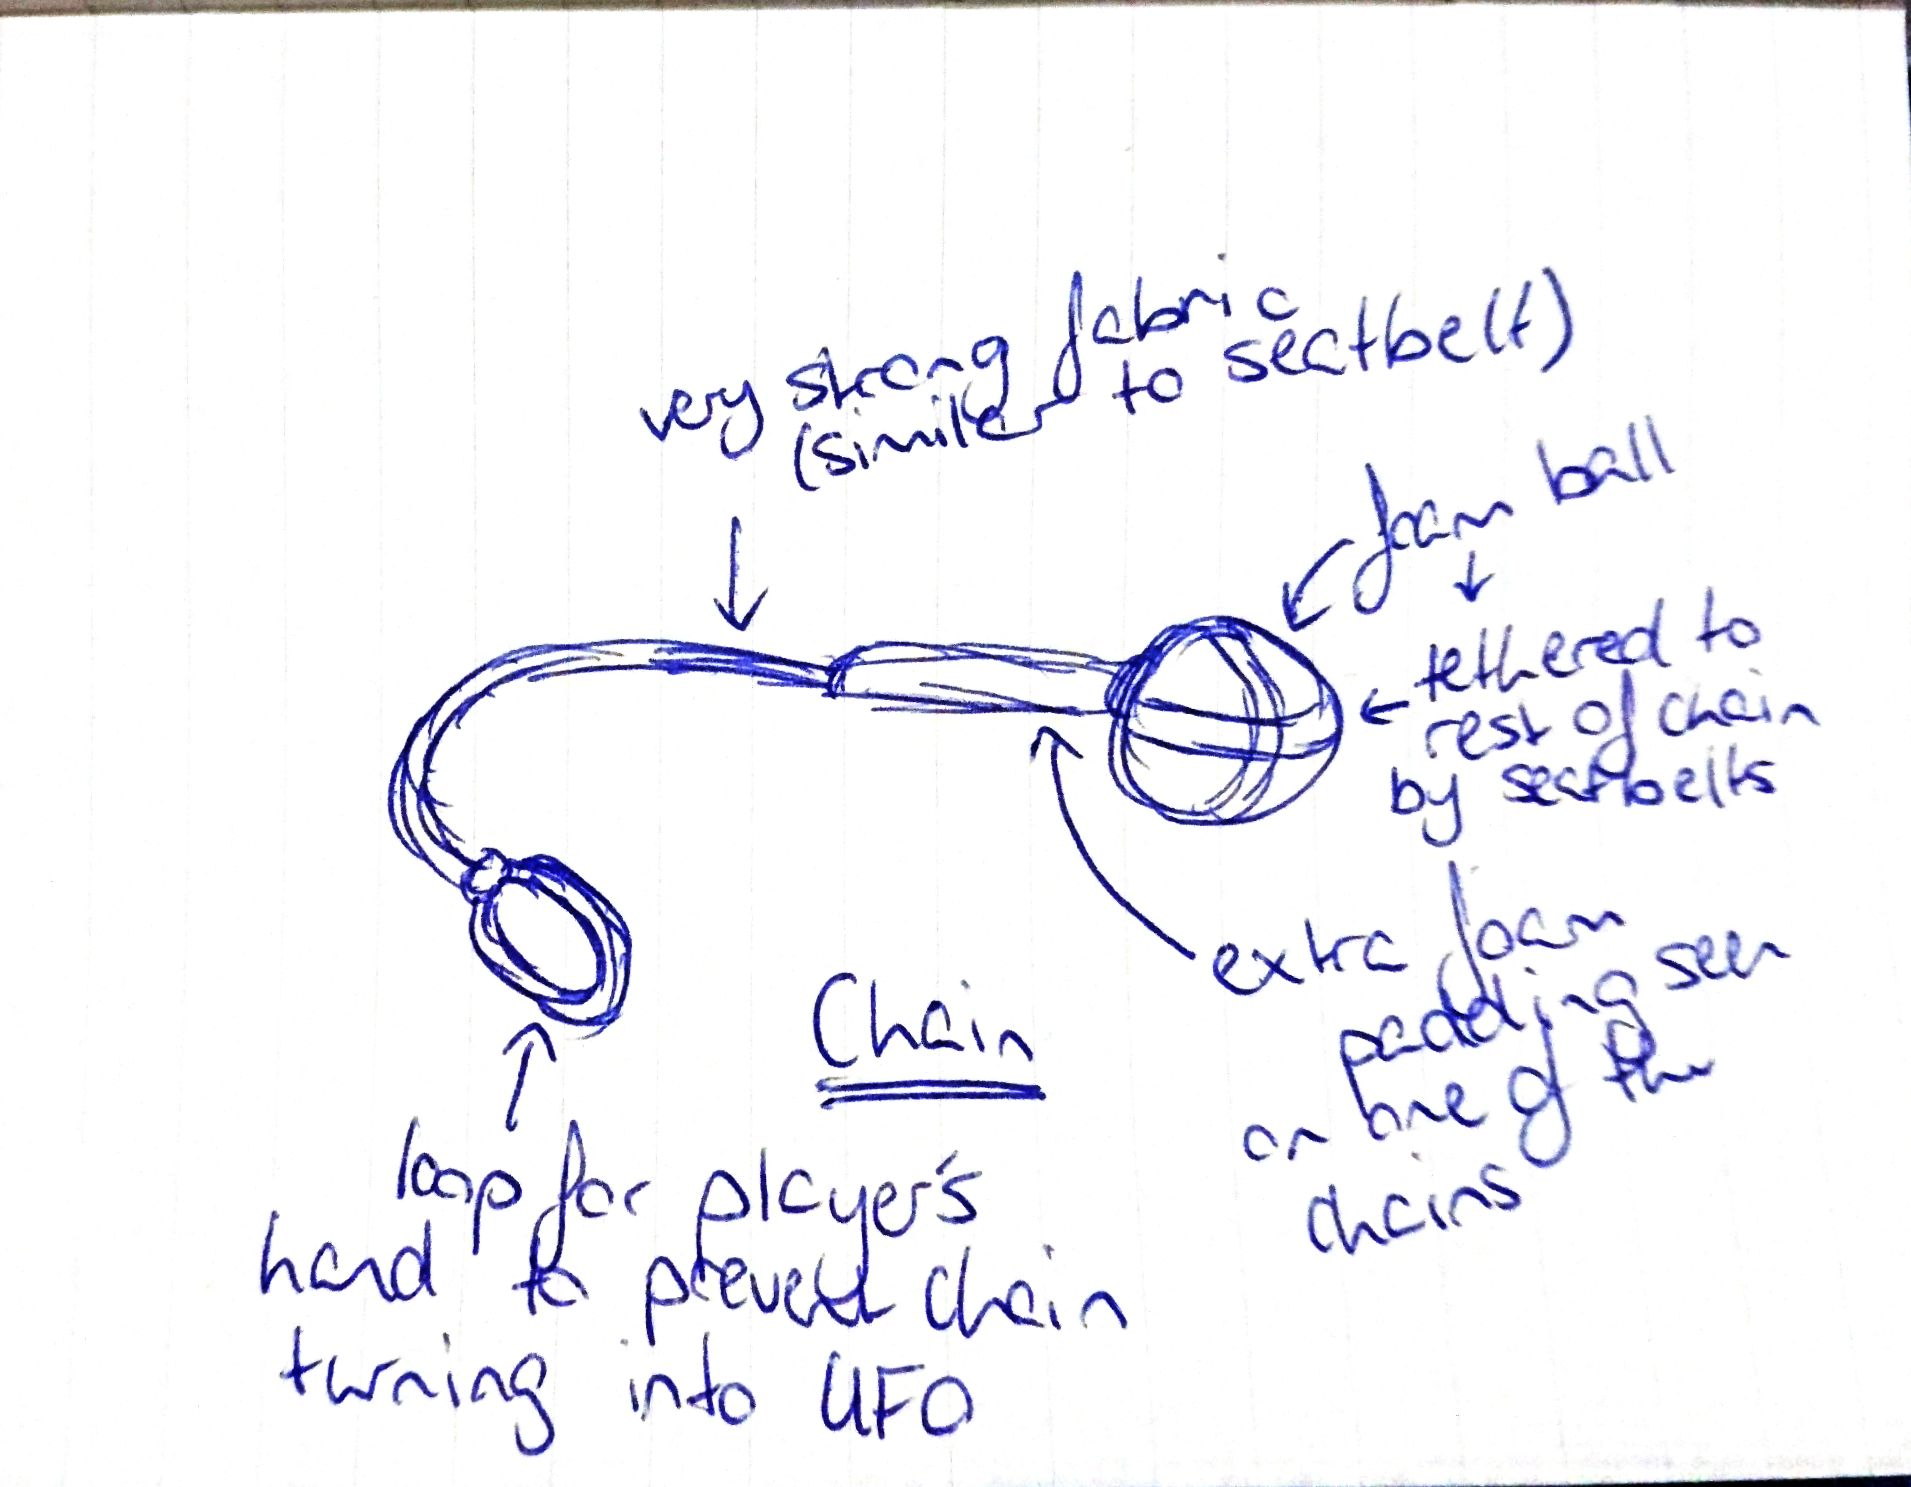 very strong fabric
(similar to seatbelt)
foam ball
tethered to
rest of chain
by seatbelts
extra foam
padding seen
on one of the
chains
Chain
loop for player's
hand to prevent chain
turning into UFO